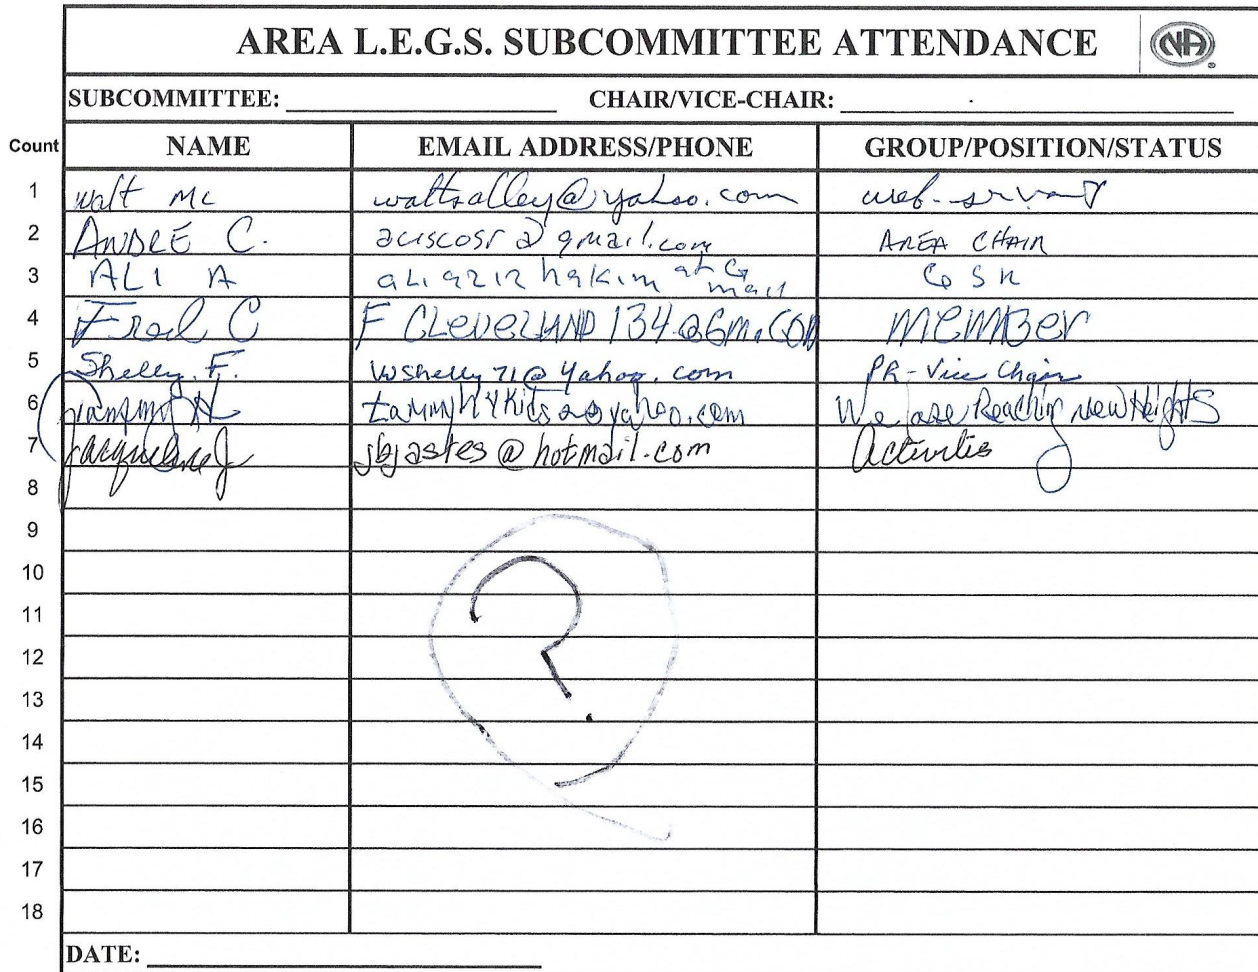 AREA L.E.G.S. SUBCOMMITTEE ATTENDANCE NA
SUBCOMMITTEE: CHAIR/VICE-CHAIR:
Count NAME EMAIL ADDRESS/PHONE GROUP/POSITION/STATUS
1 walt Mc waltsalley@yahoo.com web-srvant
2 ANDRE C. aciscosr@gmail.com AREA CHAIR
3 ALI A aliazizhakim at G mail GSR
4 Fred C F CLeveLAND 134@Gm.COM MeMBer
5 Shelly F. wshelly71@yahoo.com PR-Vice Chair
6 Tammy H We are Reaching New Heights
7 Jacqueline J jbjastes@hotmail.com Activities
8
9
10
11
12
13
14
15
16
17
18
?
DATE: